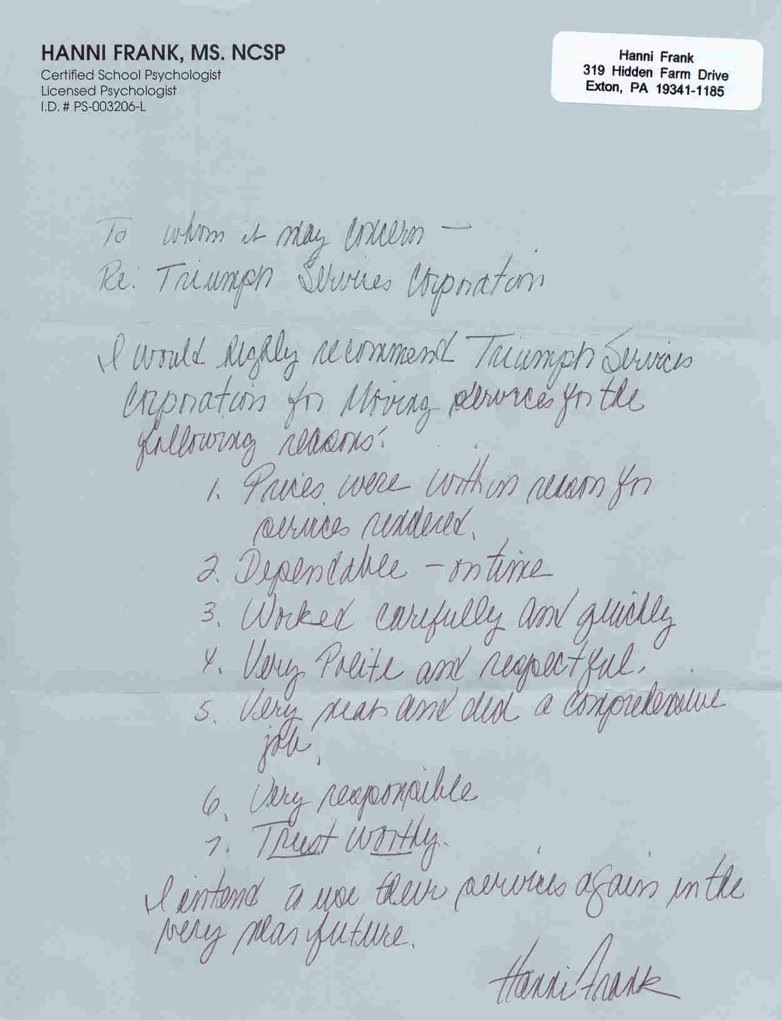 HANNI FRANK, MS. NCSP
Certified School Psychologist
Licensed Psychologist
I.D. # PS-003206-L
Hanni Frank
319 Hidden Farm Drive
Exton, PA 19341-1185
To whom it may Concern —
Re: Triumph Services Corporation
I would highly recommend Triumph Services
Corporation for Moving services for the
following reasons:
1. Prices were within reason for
services rendered.
2. Dependable - on time
3. Worked carefully and quickly
4. Very Polite and respectful.
5. Very neat and did a comprehensive
job.
6. Very responsible
7. Trust Worthy.
I intend to use their services again in the
very near future.
Hanni Frank